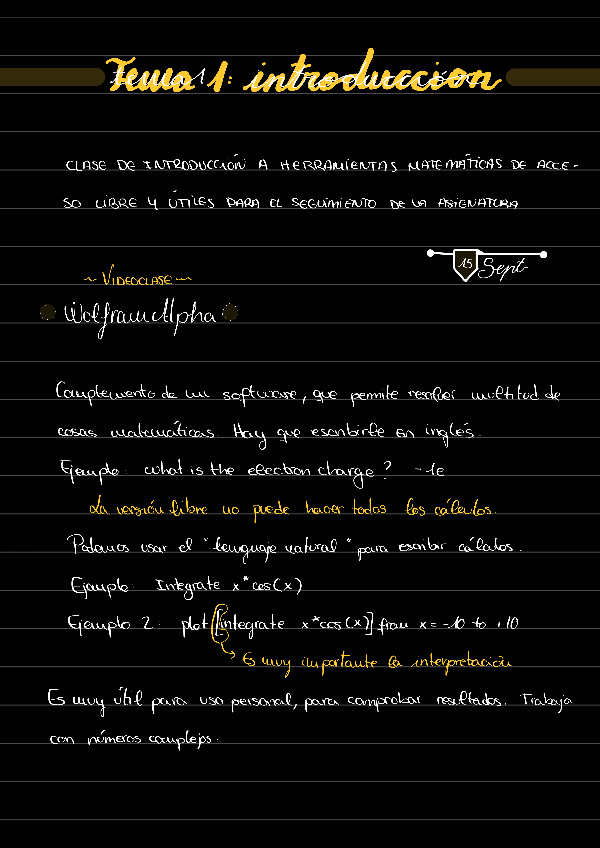 Tema 1: introduccion
CLASE DE INTRODUCCIÓN A HERRAMIENTAS MATEMÁTICAS DE ACCE-
SO LIBRE Y ÚTILES PARA EL SEGUIMIENTO DE LA ASIGNATURA
15 Sept
~ VIDEOCLASE ~
WolframAlpha
Complemento de un software, que permite resolver multitud de
cosas matemáticas. Hay que escribirle en inglés.
Ejemplo: what is the electron charge? -1e
La versión libre no puede hacer todos los cálculos.
Podamos usar el "lenguaje natural" para escribir cálculos.
Ejemplo: Integrate x*cos(x)
Ejemplo 2: plot [integrate x*cos(x)] from x=-10 to +10
Es muy importante la interpretación
Es muy útil para uso personal, para comprobar resultados. Trabaja
con números complejos.